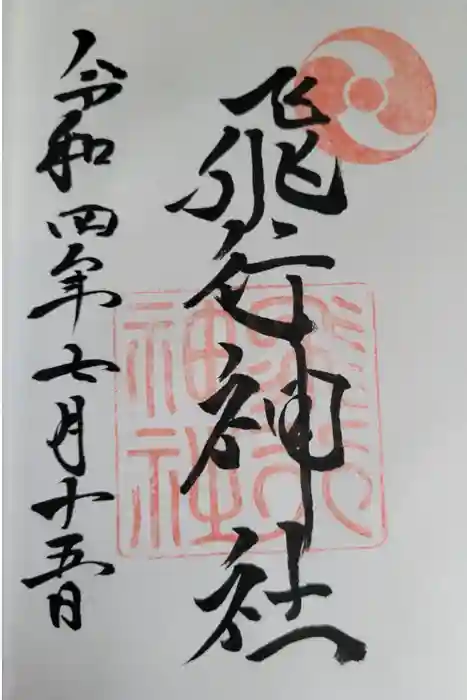 飛行神社
令和四年七月十五日
飛行
神社